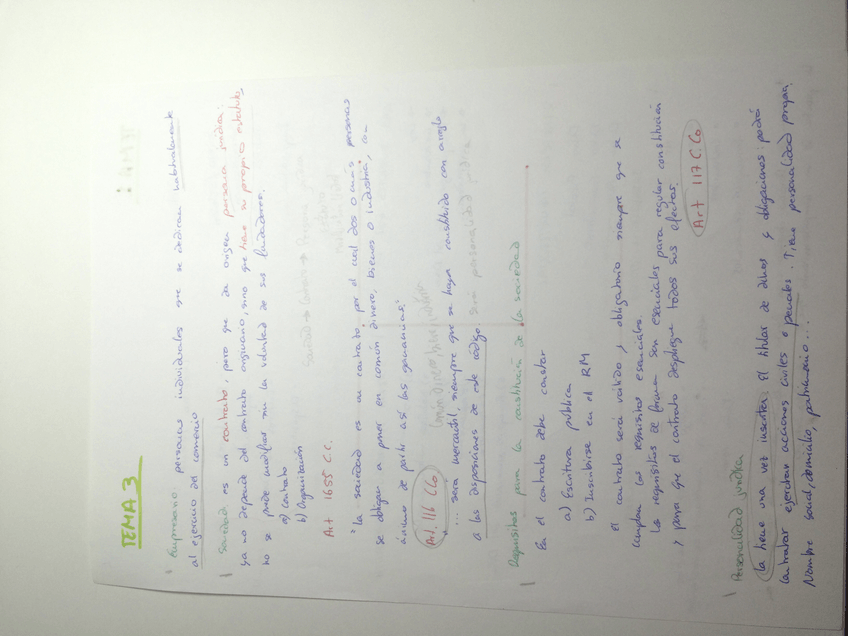 TEMA 3
Empresario personas individuales que se dedican habitualmente
al ejercicio del comercio
Sociedad es un contrato, pero que da origen persona jurídica,
ya no depende del contrato originario, sino que tiene su propio estatuto,
no se puede modificar sin la voluntad de sus fundadores.
a) Contrato
b) Organización
Art 1655 C.C.
"La sociedad es un contrato por el cual dos o más personas
se obligan a poner en común dinero, bienes o industria, con
ánimo de partir así las ganancias."
Art. 116 CCo
... será mercantil, siempre que se haya constituido con arreglo
a las disposiciones de este código. Será personalidad jurídica
Requisitos para la constitución de la sociedad
En el contrato debe constar
a) Escritura pública
b) Inscribirse en el RM
El contrato será válido y obligatorio siempre que se
cumplan los requisitos esenciales.
Los requisitos de forma son esenciales para regular constitución
y para que el contrato despliegue todos sus efectos.
Art 117 C.Co
Personalidad jurídica
La tiene una vez inscrita. El titular de dchos y obligaciones: podrá
contratar ejercitar acciones civiles o penales. Tiene personalidad propia.
Nombre social, domicilio, patrimonio...